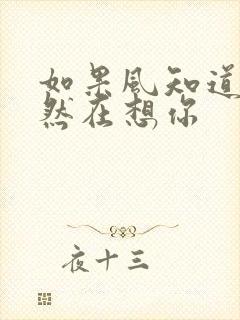 如果風知道
然在想你
夜十三